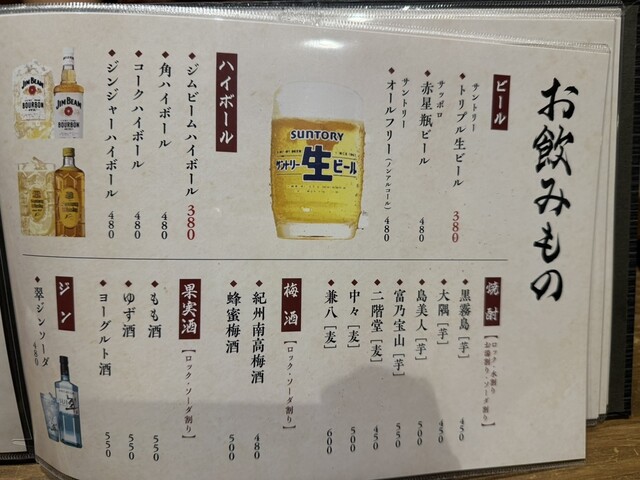 お飲みもの
ビール
サントリー
◆トリプル生ビール 380
サッポロ
◆赤星瓶ビール 480
サントリー
◆オールフリー(ノンアルコール) 480
SUNTORY
サントリー生ビール
ハイボール
◆ジムビームハイボール 380
◆角ハイボール 480
◆コークハイボール 480
◆ジンジャーハイボール 480
JIM BEAM
BOURBON
JIM BEAM
BOURBON
焼酎
【ロック・水割り
お湯割り・ソーダ割り】
◆黒霧島【芋】 450
◆大隅【芋】 450
◆島美人【芋】 500
◆富乃宝山【芋】 550
◆二階堂【麦】 450
◆中々【麦】 500
◆兼八【麦】 600
梅酒【ロック・ソーダ割り】
◆紀州南高梅酒 480
◆蜂蜜梅酒 500
果実酒【ロック・ソーダ割り】
◆もも酒 550
◆ゆず酒 550
◆ヨーグルト酒 550
ジン
◆翠ジンソーダ 480
翠